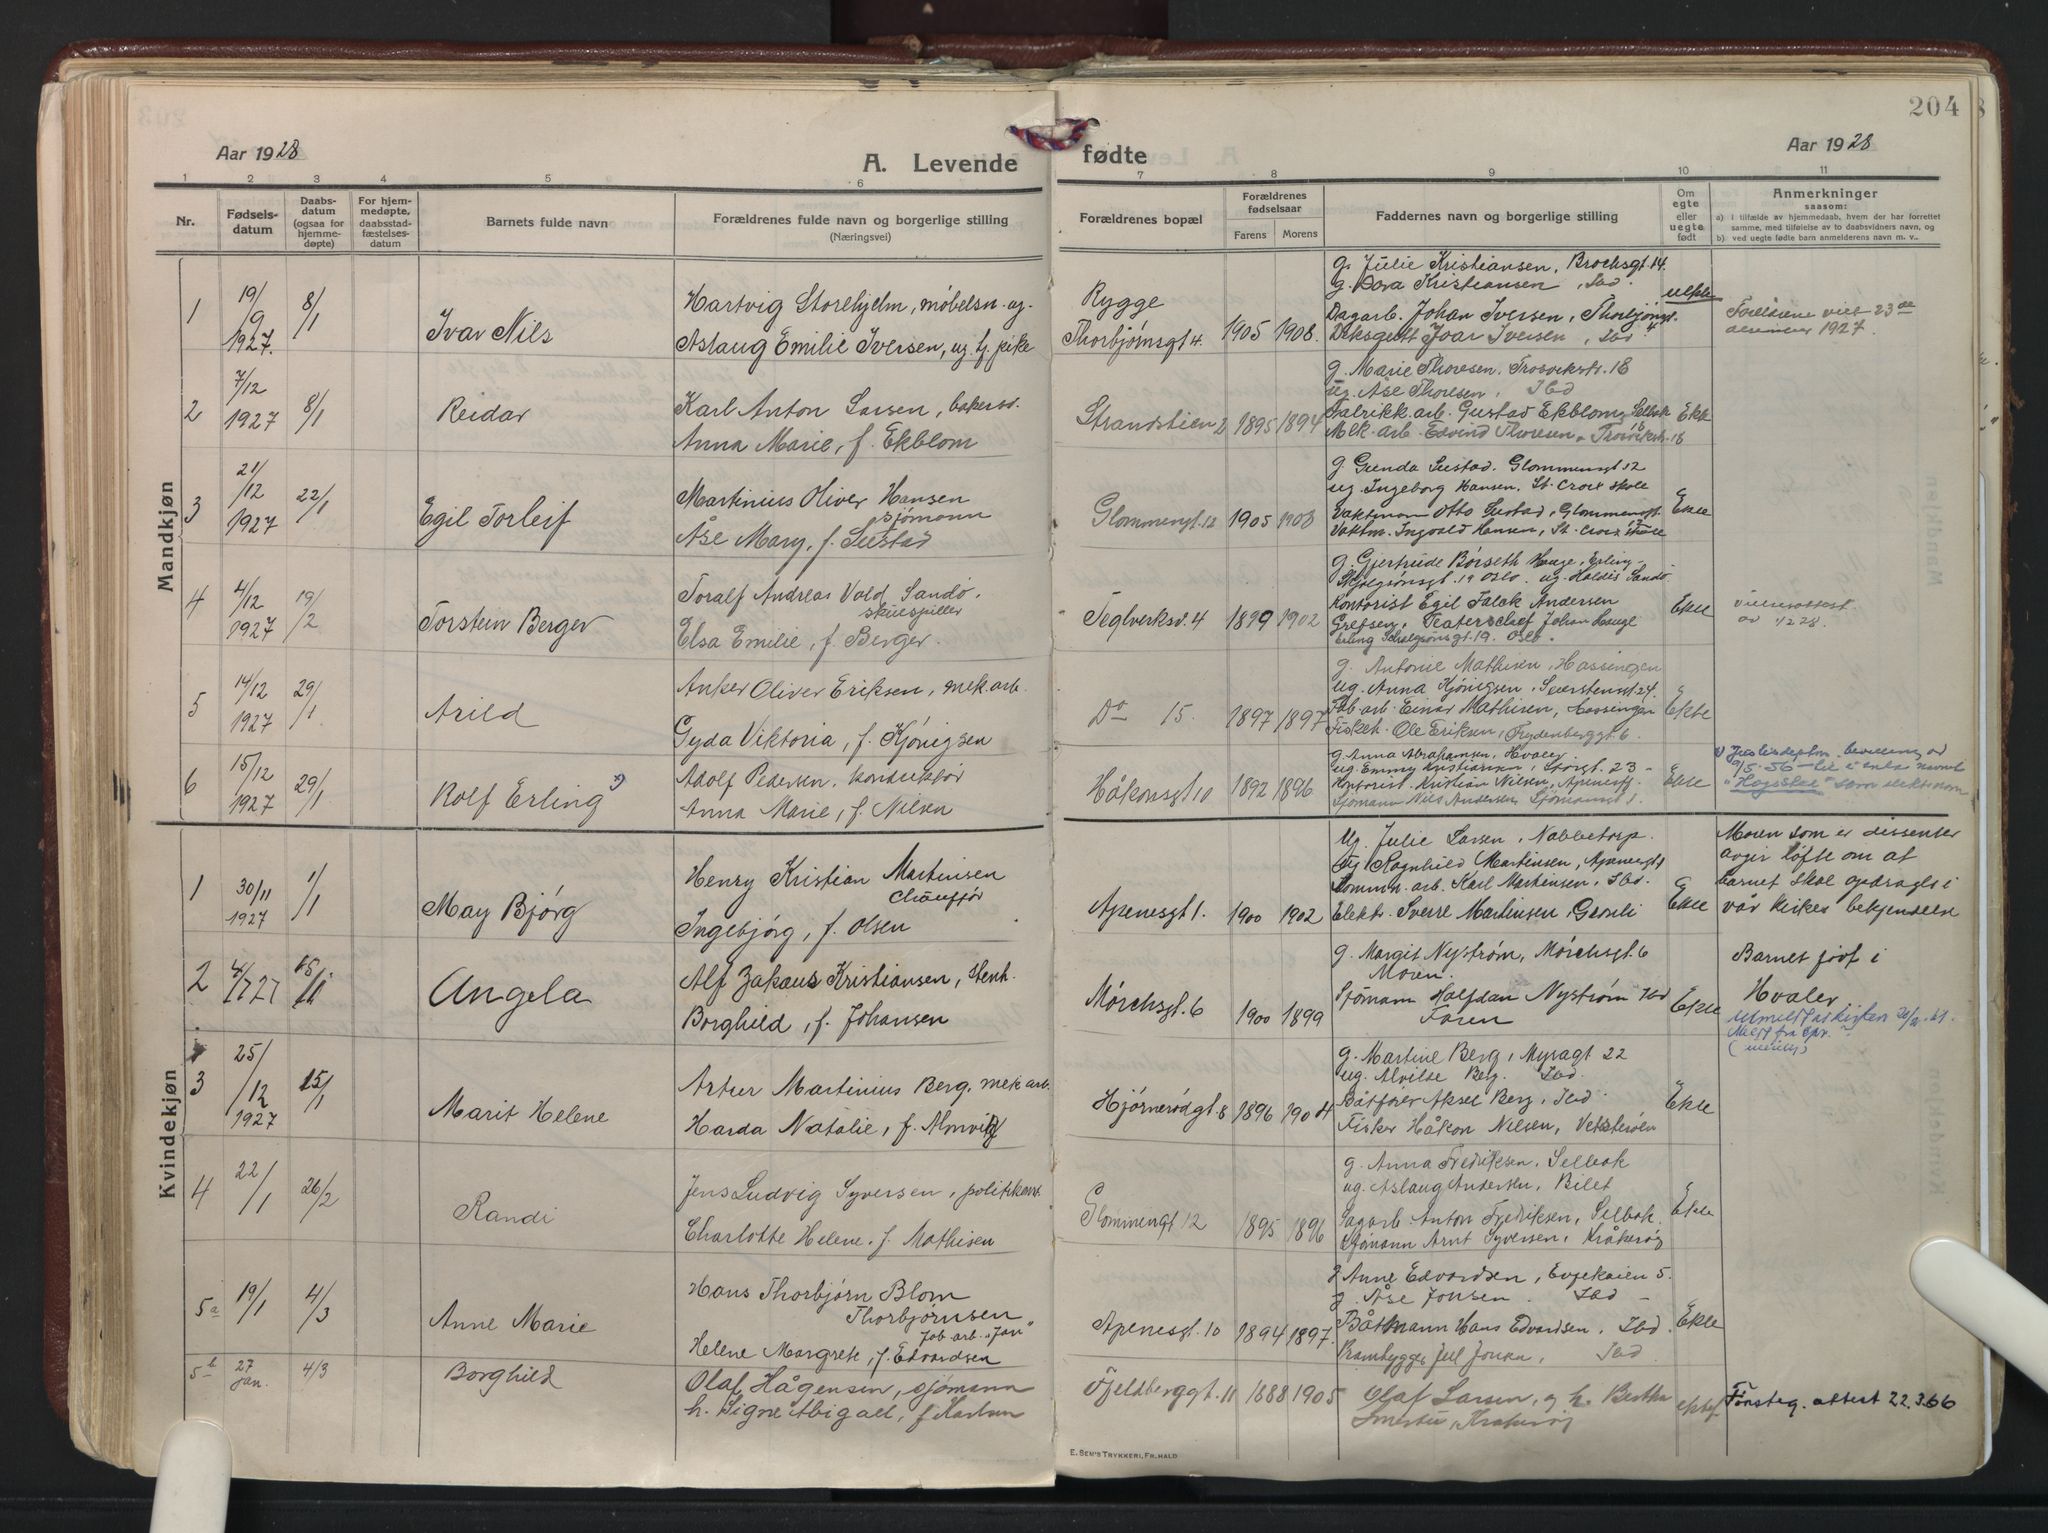 204
Aar 1928
A. Levende fødte
Aar 1928
1 2 3 4 5 6 7 8 9 10 11
Nr.
Fødselsdatum
Daabsdatum (ogsaa for hjemmedøpte)
For hjemmedøpte, daabsstadfæstelsesdatum
Barnets fulde navn
Forældrenes fulde navn og borgerlige stilling
(Næringsvei)
Forældrenes bopæl
Forældrenes fødselsaar
Farens Morens
Faddernes navn og borgerlige stilling
Om egte eller uegte født
Anmerkninger
saasom:
a) i tilfælde av hjemmedaab, hvem der har forrettet samme, med tilføielse av to daabsvidners navn, og
b) ved uegte fødte barn anmelderens navn m. v.
Mandkjøn
1 19/9 1927. 8/1 Ivar Nils
Hartvig Storehjelm, møbelsn. ug.
Aslaug Emilie Iversen, ug. hj. pike
Rygge
Thorbjørnsgt 4. 1905 1908.
g. Julie Kristiansen, Brochsgt. 14.
g. Dora Kristiansen, Ibd.
Dagarb. Johan Iversen, Thorbjørnsgt. 4
Dreksgutt Ivar Iversen, Ibd
uekte
Foreldrene viet 23de desember 1927.
2 7/12 1927 8/1 Reidar
Karl Anton Larsen, bakersv.
Anna Marie, f. Ekblom
Strandstien 2 1895 1894
g. Marie Thoresen. Trosvikstr. 18
ug. Åse Thoresen, Ibd
Fabrikk. arb. Gustad Ekblom, Selbak
Mek. arb. Edvind Thoresen, Trosvikstr. 18
Ekte
3 21/12 1927 22/1 Egil Torleif
Martinius Oliver Hansen
sjømann
Åse Mary, f. Sustad
Glommengt. 12 1905 1908
g. Gunda Sustad. Glommengt 12
ug. Ingeborg Hansen, St. Croix skole
Vaktmann Otto Sustad, Glommengt.
Vaktm. Ingvald Hansen, St. Croix skole
Ekte
4 4/12 1927 19/2 Torstein Berger
Toralf Andreas Vold Sandø,
skuespiller
Elsa Emilie, f. Berger.
Teglverksv. 4 1899 1902
g. Gjertrude Börseth Hauge, Erling
Skjalgsönsgt. 19 Oslo. ug. Haldis Sandø
Kontorist Egil Falck Andersen
Grefsen, Teaterchef Johan Hauge
Erling Skjalgsönsgt. 19. Oslo.
Ekte
5 14/12 1927 29/1 Arild
Anker Oliver Eriksen, mek. arb.
Gyda Viktoria, f. Kjönigsen
Do 15. 1897 1897
g. Antonie Mathisen, Hassingen
ug. Anna Kjönigsen, 24.
Fab. arb. Einar Mathisen, Hassingen
Fiskeh. Ole Eriksen, Frydenberggt. 6.
Ekte
6 15/12 1927 29/1 Rolf Erling
Adolf Pedersen, konduktør
Anna Marie, f. Nilsen
Håkonsgt 10 1892 1896
g. Anna Abrahamsen, Hvaler
ug. Emmy Kristiansen, Storgt. 23
Kontorist Kristian Nilsen, Apenesgt.
Sjömann Nils Andersen Sjömannsgt 1.
Ekte
Justisdeptm. bevilling av
9/5-56
"Hogsske" som slektsnavn
Kvindekjøn
1 30/11 1927 1/1 May Bjørg
Henry Kristian Martinsen
Chauffør
Ingebjørg, f. Olsen
Apenesgt 1. 1900 1902
Ug. Julie Larsen, Nabbetorp.
Ug Ragnhild Martinsen, Apenesgt 1
Komm. arb. Karl Martinsen, Ibd.
Elektr. Sverre Martinsen, Grønli
Ekte
Moren som er dissenter
avgir løfte om at
barnet skal opdrages i
vår kirkes bekjendelse
2 15/1 Angela
Alf Zakæus Kristiansen, stenh.
Borghild, f. Johansen
Mørchsgt. 6 1900 1899
g. Margit Nystrøm, Mörchsgt. 6
Moren.
Sjømann Halfdan Nystrøm Ibd
Faren
Ekte
Barnet født i
Hvaler
Utmeldt av kirken
3 25/12 1927 15/1 Marit Helene
Artur Martinius Berg, mek arb.
Harda Natalie, f. Almvig
Hjørnerødgt. 8 1896 1904
g. Martine Berg, Myragt 22
ug. Alvilde Berg. Ibd.
Båtfører Aksel Berg, Ibd
Fisker Håkon Nilsen, Vesterøen
Ekte
4 22/1 26/2 Randi
Jens Ludvig Syversen, politikonst.
Charlotte Helene, f. Mathisen
Glommengt 12 1895 1896
g. Anna Fredriksen, Selbak
ug. Aslaug Andersen, Bilet
Sagarb. Anton Fredriksen, Selbak.
Sjømann Arnt Syversen, Kråkerøy
Ekte
5a 19/1 4/3 Anne Marie
Hans Thorbjørn Blom
Thorbjørnsen
Fab. arb. "Jon"
Helene Margrete, f. Edvardsen
Apenesgt. 10 1894 1897.
g. Anne Edvardsen, Evjekaien 5.
g. Åse Jonsen. Ibd
Båtmann Hans Edvardsen, Ibd
Ibd
Ekte
5b 27 jan. 4/3 Borghild
Olaf Hågensen, sjømann
h. Signe Abigael, f. Karlsen
Fjeldberggt. 11 1888 1905
Olaf Larsen, og h. Bertha
Kråkerøy
ektef
Førsteg. attest 22.3.66
E. SEM'S TRYKKERI, FR.HALD